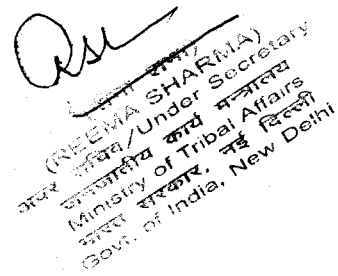 (REEMA SHARMA)
अवर सचिव/Under Secretary
जनजातीय कार्य मन्त्रालय
Ministry of Tribal Affairs
भारत सरकार, नई दिल्ली
Govt. of India, New Delhi